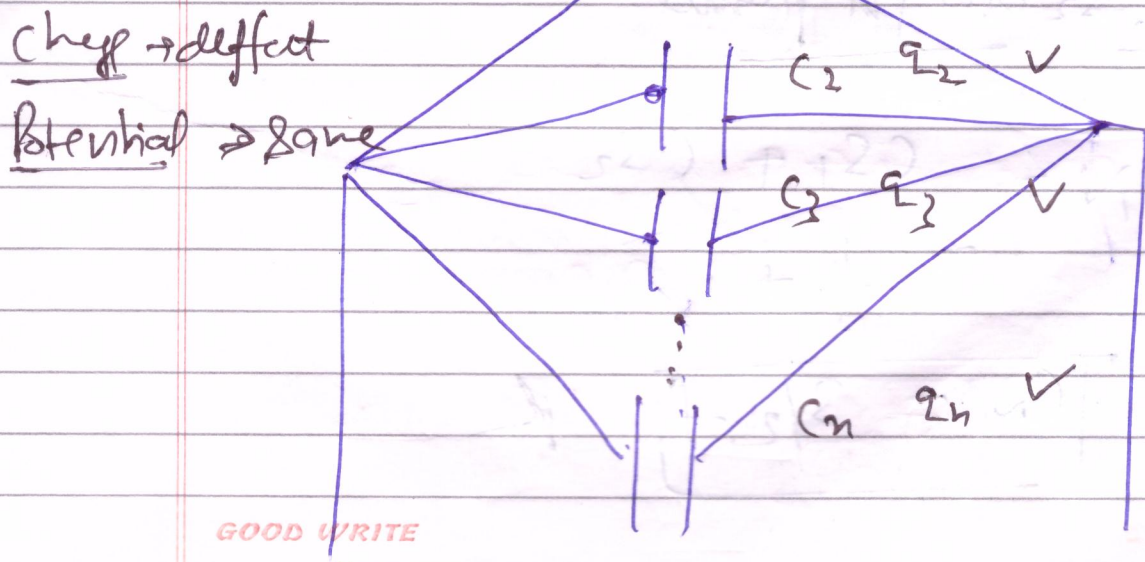 Charge → diffent
Potential → Same
C2 q2 V
C3 q3 V
Cn qn V
GOOD WRITE